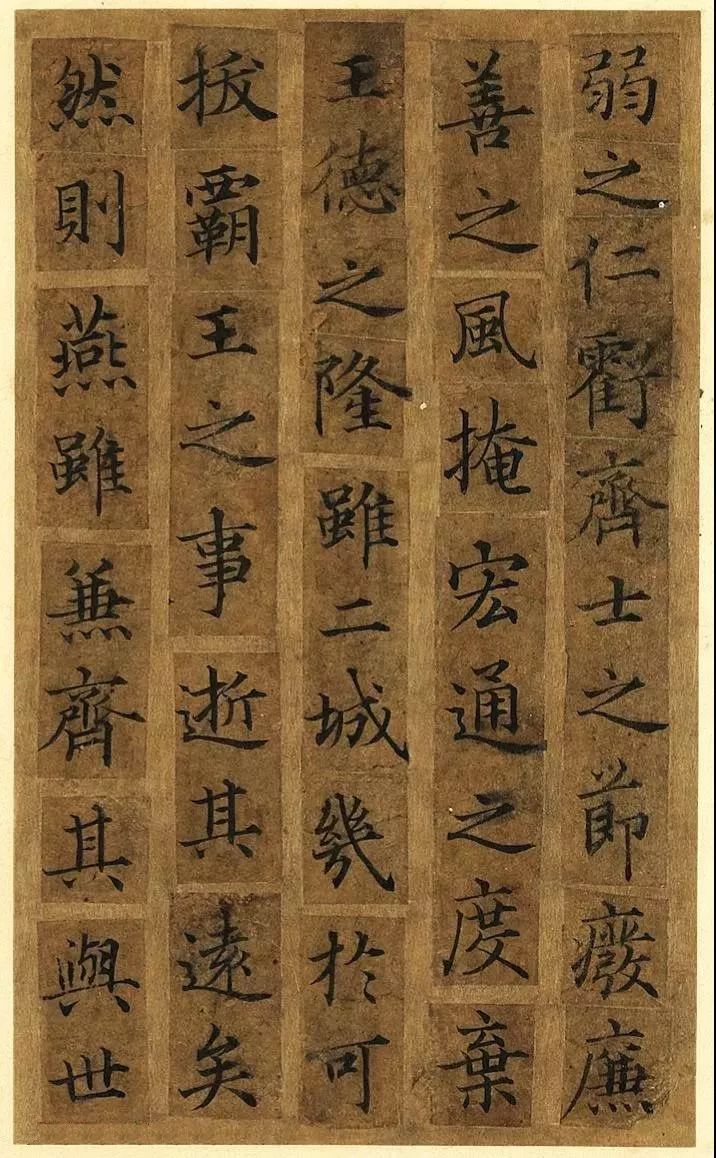 弱之仁虧齊士之節癈廉
善之風掩宏通之度棄
王德之隆雖二城幾於可
拔霸王之事逝其遠矣
然則燕雖兼齊其與世